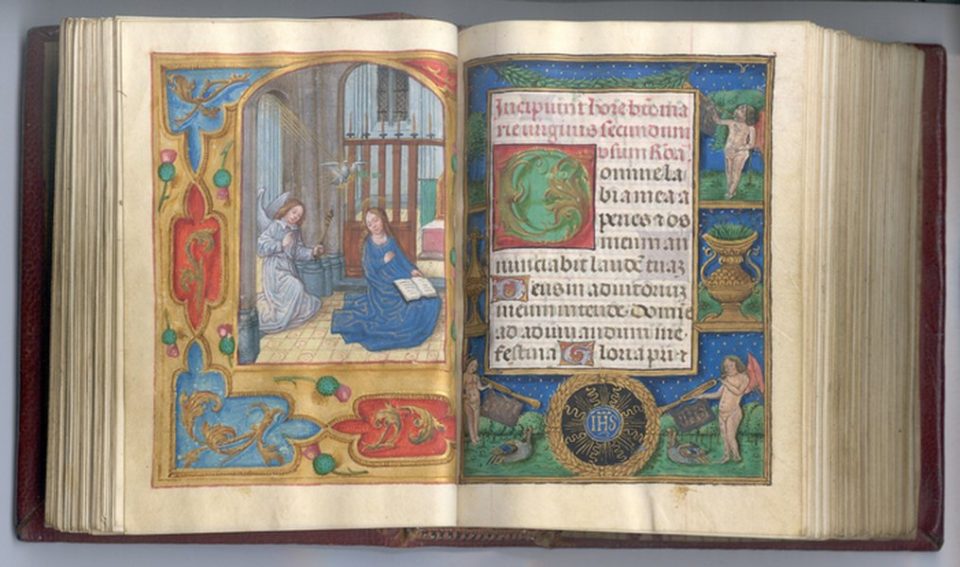 Incipiunt hore bt̄e ma
rie virginis secundum
vsum Roā.
Domine la
bia mea a
peries et os
meum an
nunciabit laudē tuaꝫ
Deus in adiutoriuꝫ
meum intende. Domie
ad adiuuandum me
festina Gloria pri et
IHS